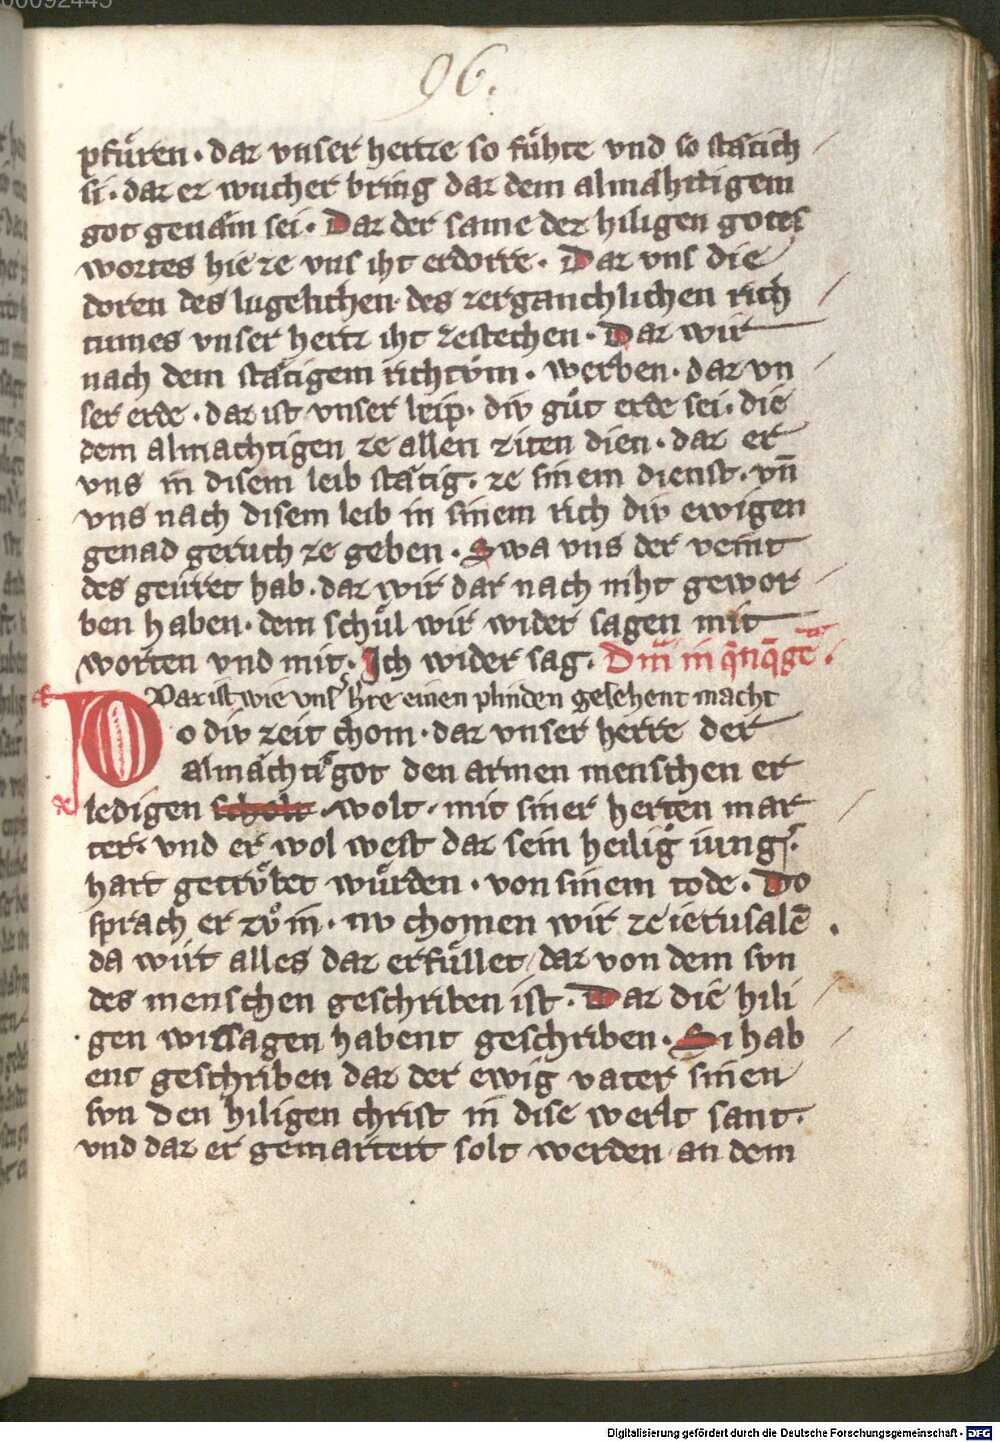 00092445
96.
pfuͤren · daz vnser hertze so fuͤhte vnd so staͤtich
si · daz er wucher bring daz dem almaͤhtigem
got genaͤm sei · Daz der same dez hiligen gotes
wortes hie ze vns iht erdorre · Daz vns die
doren des lugelichen · des zerganchlichen rich
tumes vnser hertz iht zestechen · Daz wir
nach dem staͤtigem richtvͦm · werben · daz vn
ser erde · daz ist vnser leip · div guͦt erde sei · die
dem almachtigen ze allen ziten dien · daz er
vns in disem leib staͤtig · ze sinem dienst · vn̄
vns nach disem leib in sinem rich div ewigen
genad geruch ze geben · Swa vns der veint
des geirret hab · daz wir dar nach niht gewor
ben haben · dem schuͤl wir wider sagen mit
worten vnd mit · Ich wider sag · Dm̄ in q̄nq̄gē ·
Daz ist wie vnsʼ hʼre einen plinden gesehent macht
Do div zeit chom · daz vnser herre der
almaͤchtigʼ got den armen menschen er
ledigen scholt · wolt · mit siner herten mar
ter · vnd er wol west daz sein heilig iungʼ ·
hart getrvͤbet wuͤrden · von sinem tode · Do
sprach er zvͦ in · nv chomen wir ze ierusalē ·
da wirt alles daz erfuͤllet / daz von dem svn
des menschen geschriben ist · Daz die hili
gen wissagen habent geschriben · Si hab
ent geschriben daz der ewig vater sinen
svn den hiligen christ in dise werlt sant ·
vnd daz er gemartert solt werden · an dem
Digitalisierung gefördert durch die Deutsche Forschungsgemeinschaft - DFG